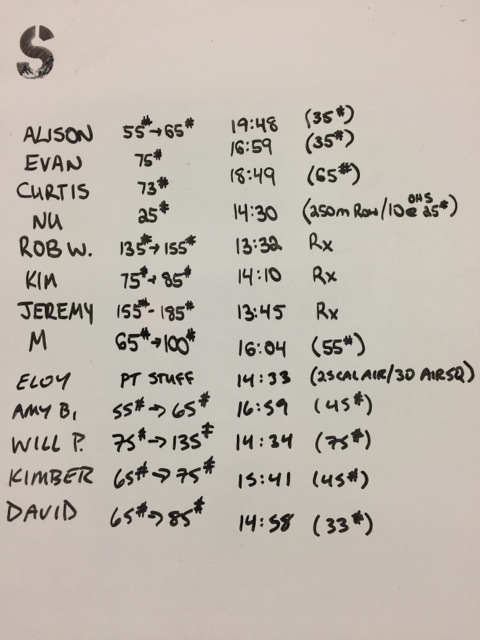 S
ALISON 55# → 65# 19:48 (35#)
EVAN 75# 16:59 (35#)
CURTIS 73# 18:49 (65#)
NU 25# 14:30 (250m Row/10@ OHS 25#)
ROB W. 135# → 155# 13:32 Rx
KIM 75# → 85# 14:10 Rx
JEREMY 155# - 185# 13:45 Rx
M 65# → 100# 16:04 (55#)
ELOY PT STUFF 14:33 (25CAL AIR/30 AIRSQ)
AMY B. 55# → 65# 16:59 (45#)
WILL P. 75# → 135# 14:34 (75#)
KIMBER 65# → 75# 15:41 (45#)
DAVID 65# → 85# 14:58 (33#)